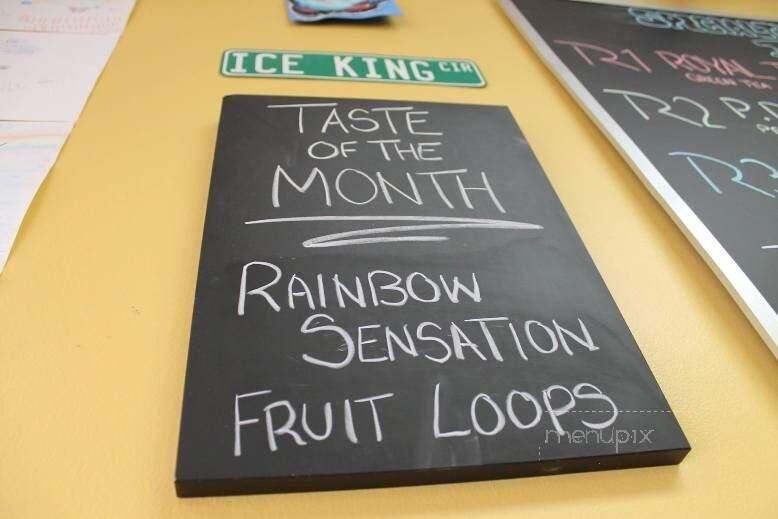 ICE KING CIR
TASTE
OF THE
MONTH
RAINBOW
SENSATION
FRUIT LOOPS
TR1 ROYAL
GREEN TEA
TR2 P.P
TR3
menupix